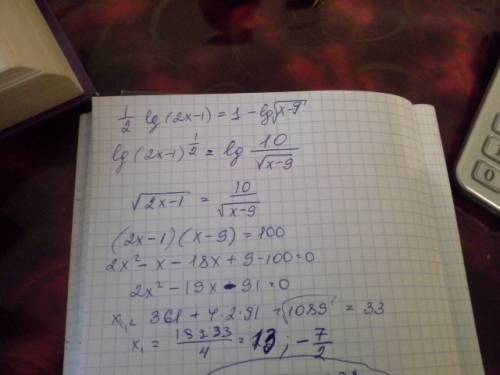 1/2 lg (2x-1) = 1 - lg√x-9
lg (2x-1)^1/2 = lg 10/√x-9
√2x-1 = 10/√x-9
(2x-1)(x-9) = 100
2x² - x - 18x + 9 - 100 = 0
2x² - 19x - 91 = 0
x₁,₂ = 361 + 4·2·91 = √1089 = 33
x₁ = 18±33/4 = 13 ; -7/2